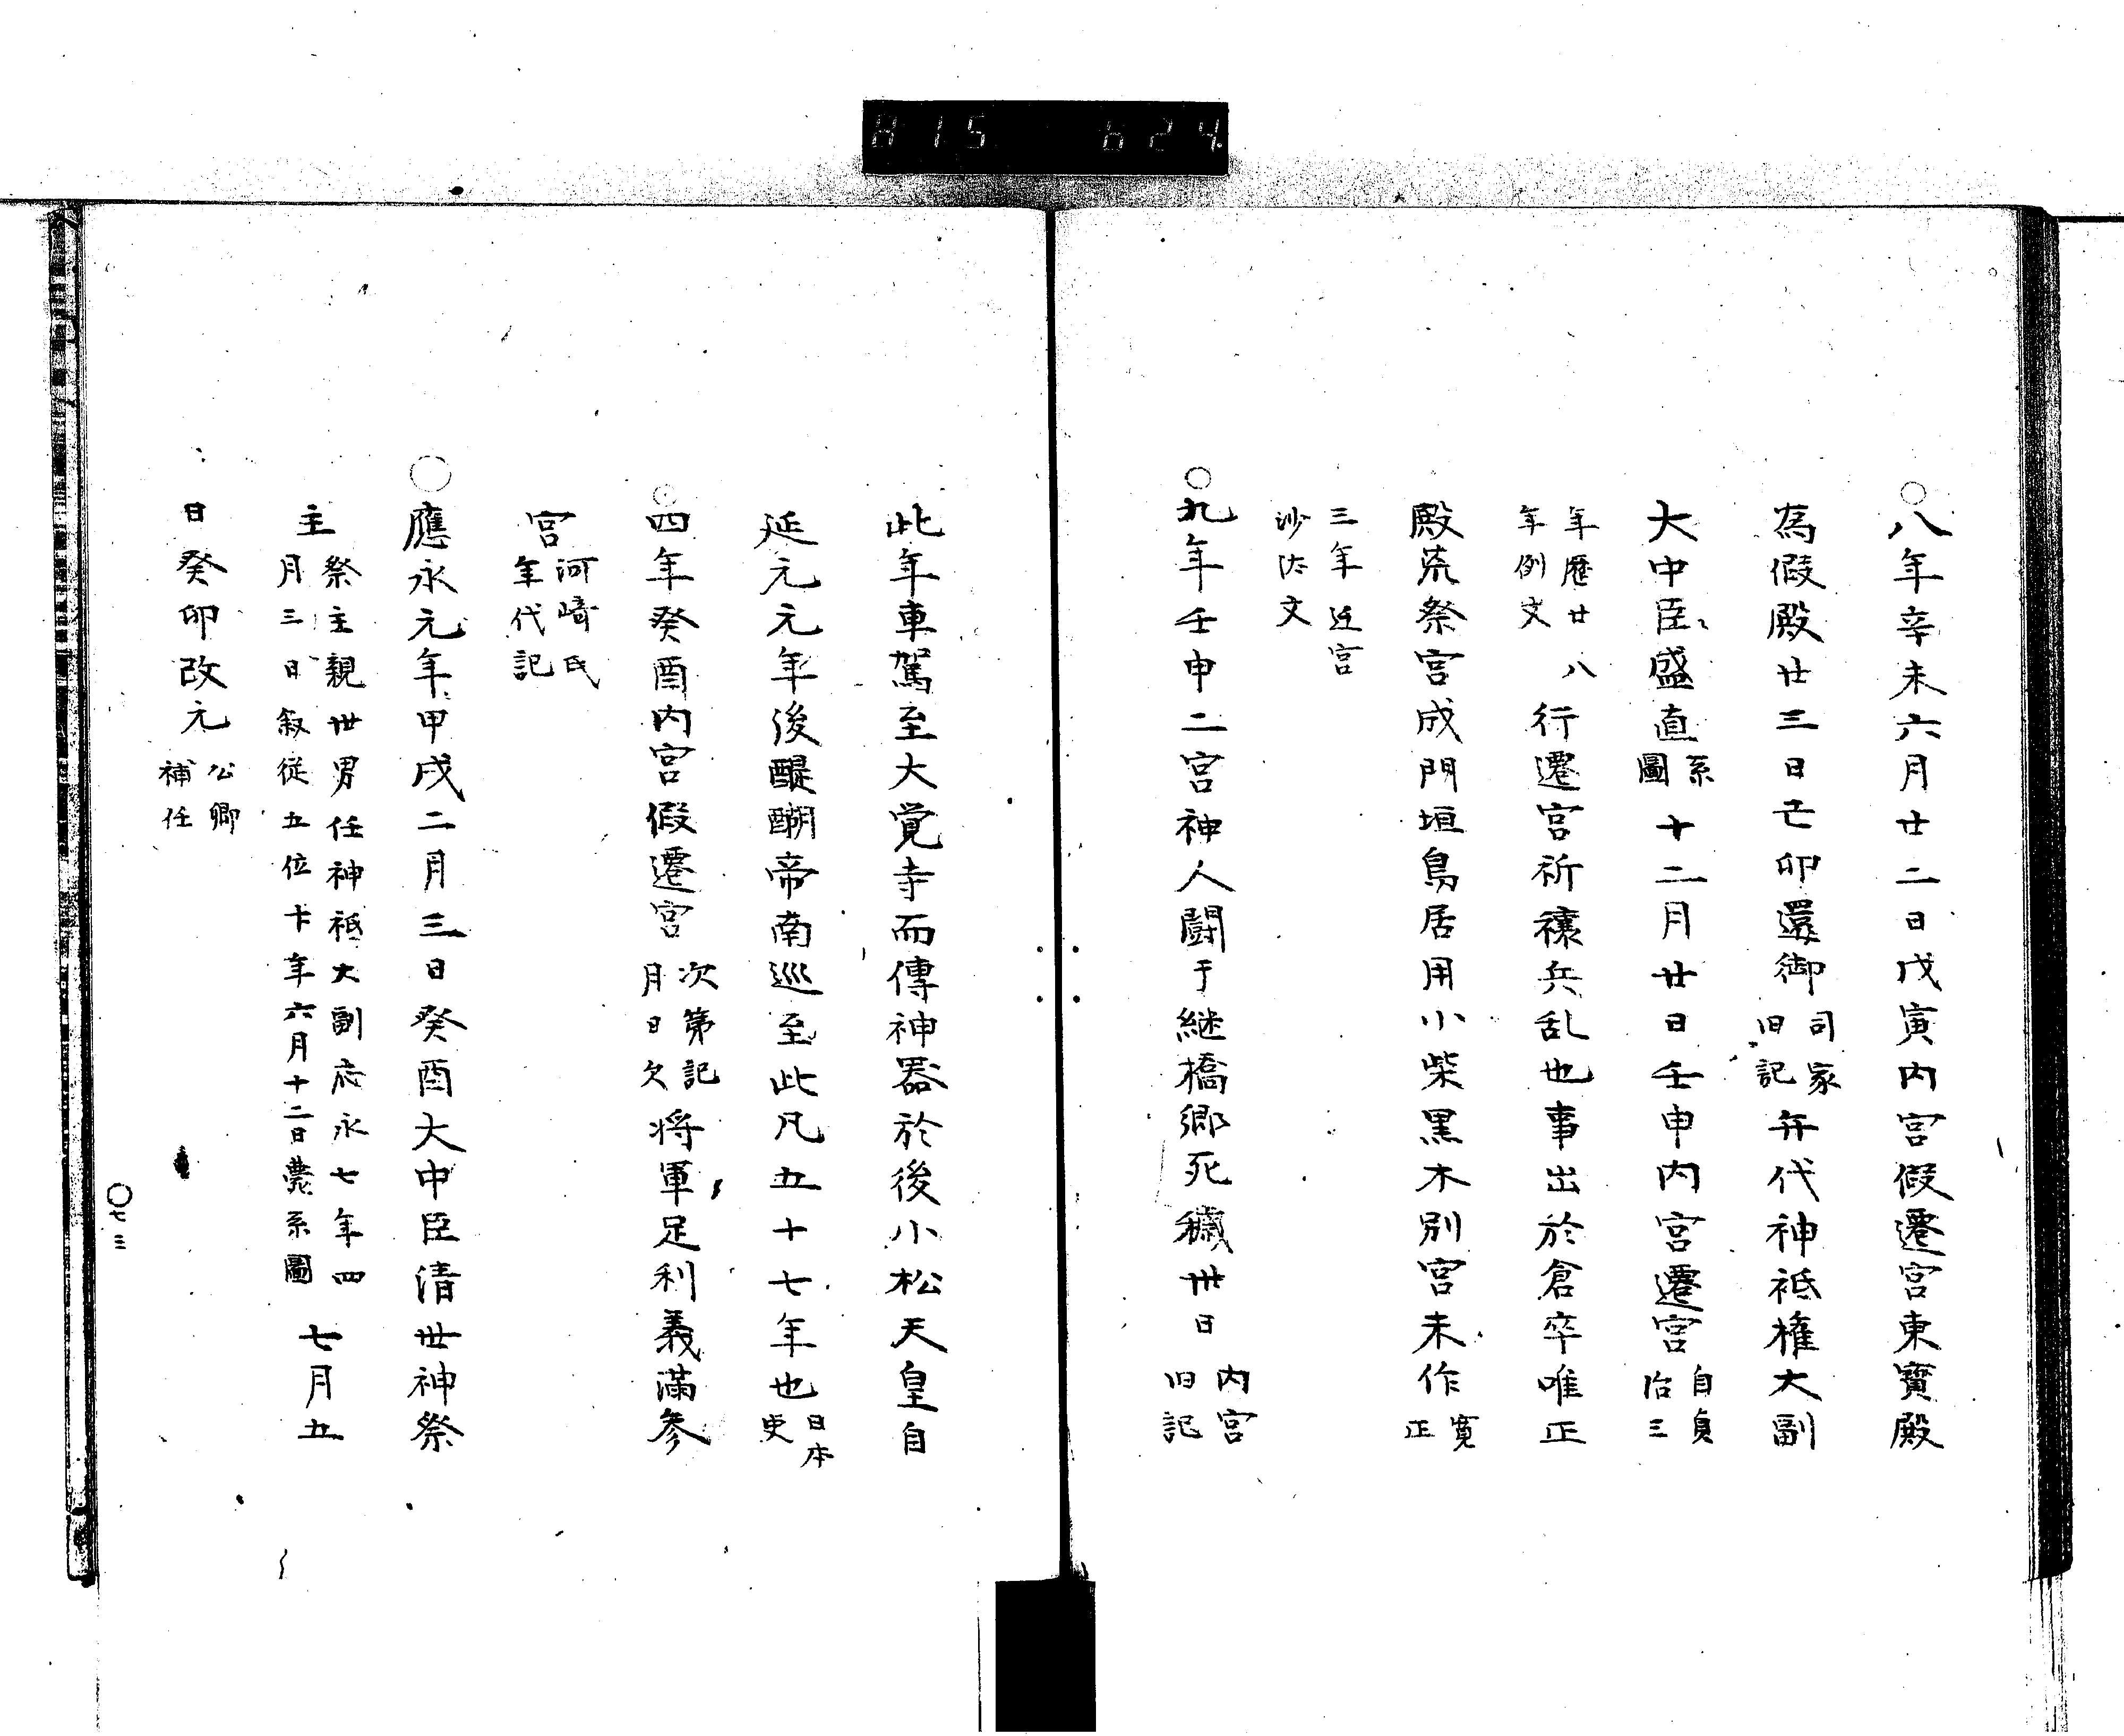 815 624
○八年辛未六月廿二日戊寅内宮假遷宮東寳殿
為假殿廿三日己卯還御司家旧記弁代神祗權大副
大中臣盛直系圖十二月廿日壬申内宮遷宮自貞治三
年歴廿八年例文行遷宮祈禳兵乱也事出於倉卒唯正
殿荒祭宮成門垣鳥居用小柴黒木別宮未作寛正
三年迁宮沙汰文
○九年壬申二宮神人闘于継橋郷死穢卅日内宮旧記
此年車駕至大覚寺而傳神器於後小松天皇自
延元元年後醍醐帝南巡至此凡五十七年也日本史
○四年癸酉内宮假遷宮次第記月日欠将軍足利義滿参
宮河崎氏年代記
○應永元年甲戌二月三日癸酉大中臣清世神祭
主祭主親世男任神祗大副応永七年四月三日叙従五位下十年六月十二日薨系圖七月五
日癸卯改元公卿補任
○七三